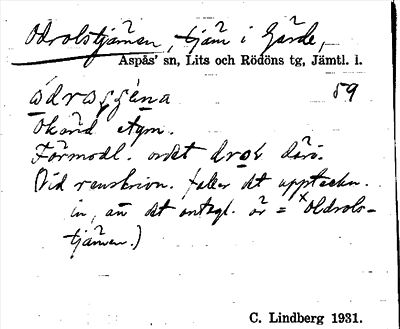 Odrolstjärnen, tjärn i Gärde,
Aspås' sn, Lits och Rödöns tg, Jämtl. i.
59
Okänd etym.
Förmodl. ordet drol däri.
(Vid renskrivn. faller det uppteckn.
in, att det antagl. är = ˣOldrols-
tjärnen.)
C. Lindberg 1931.